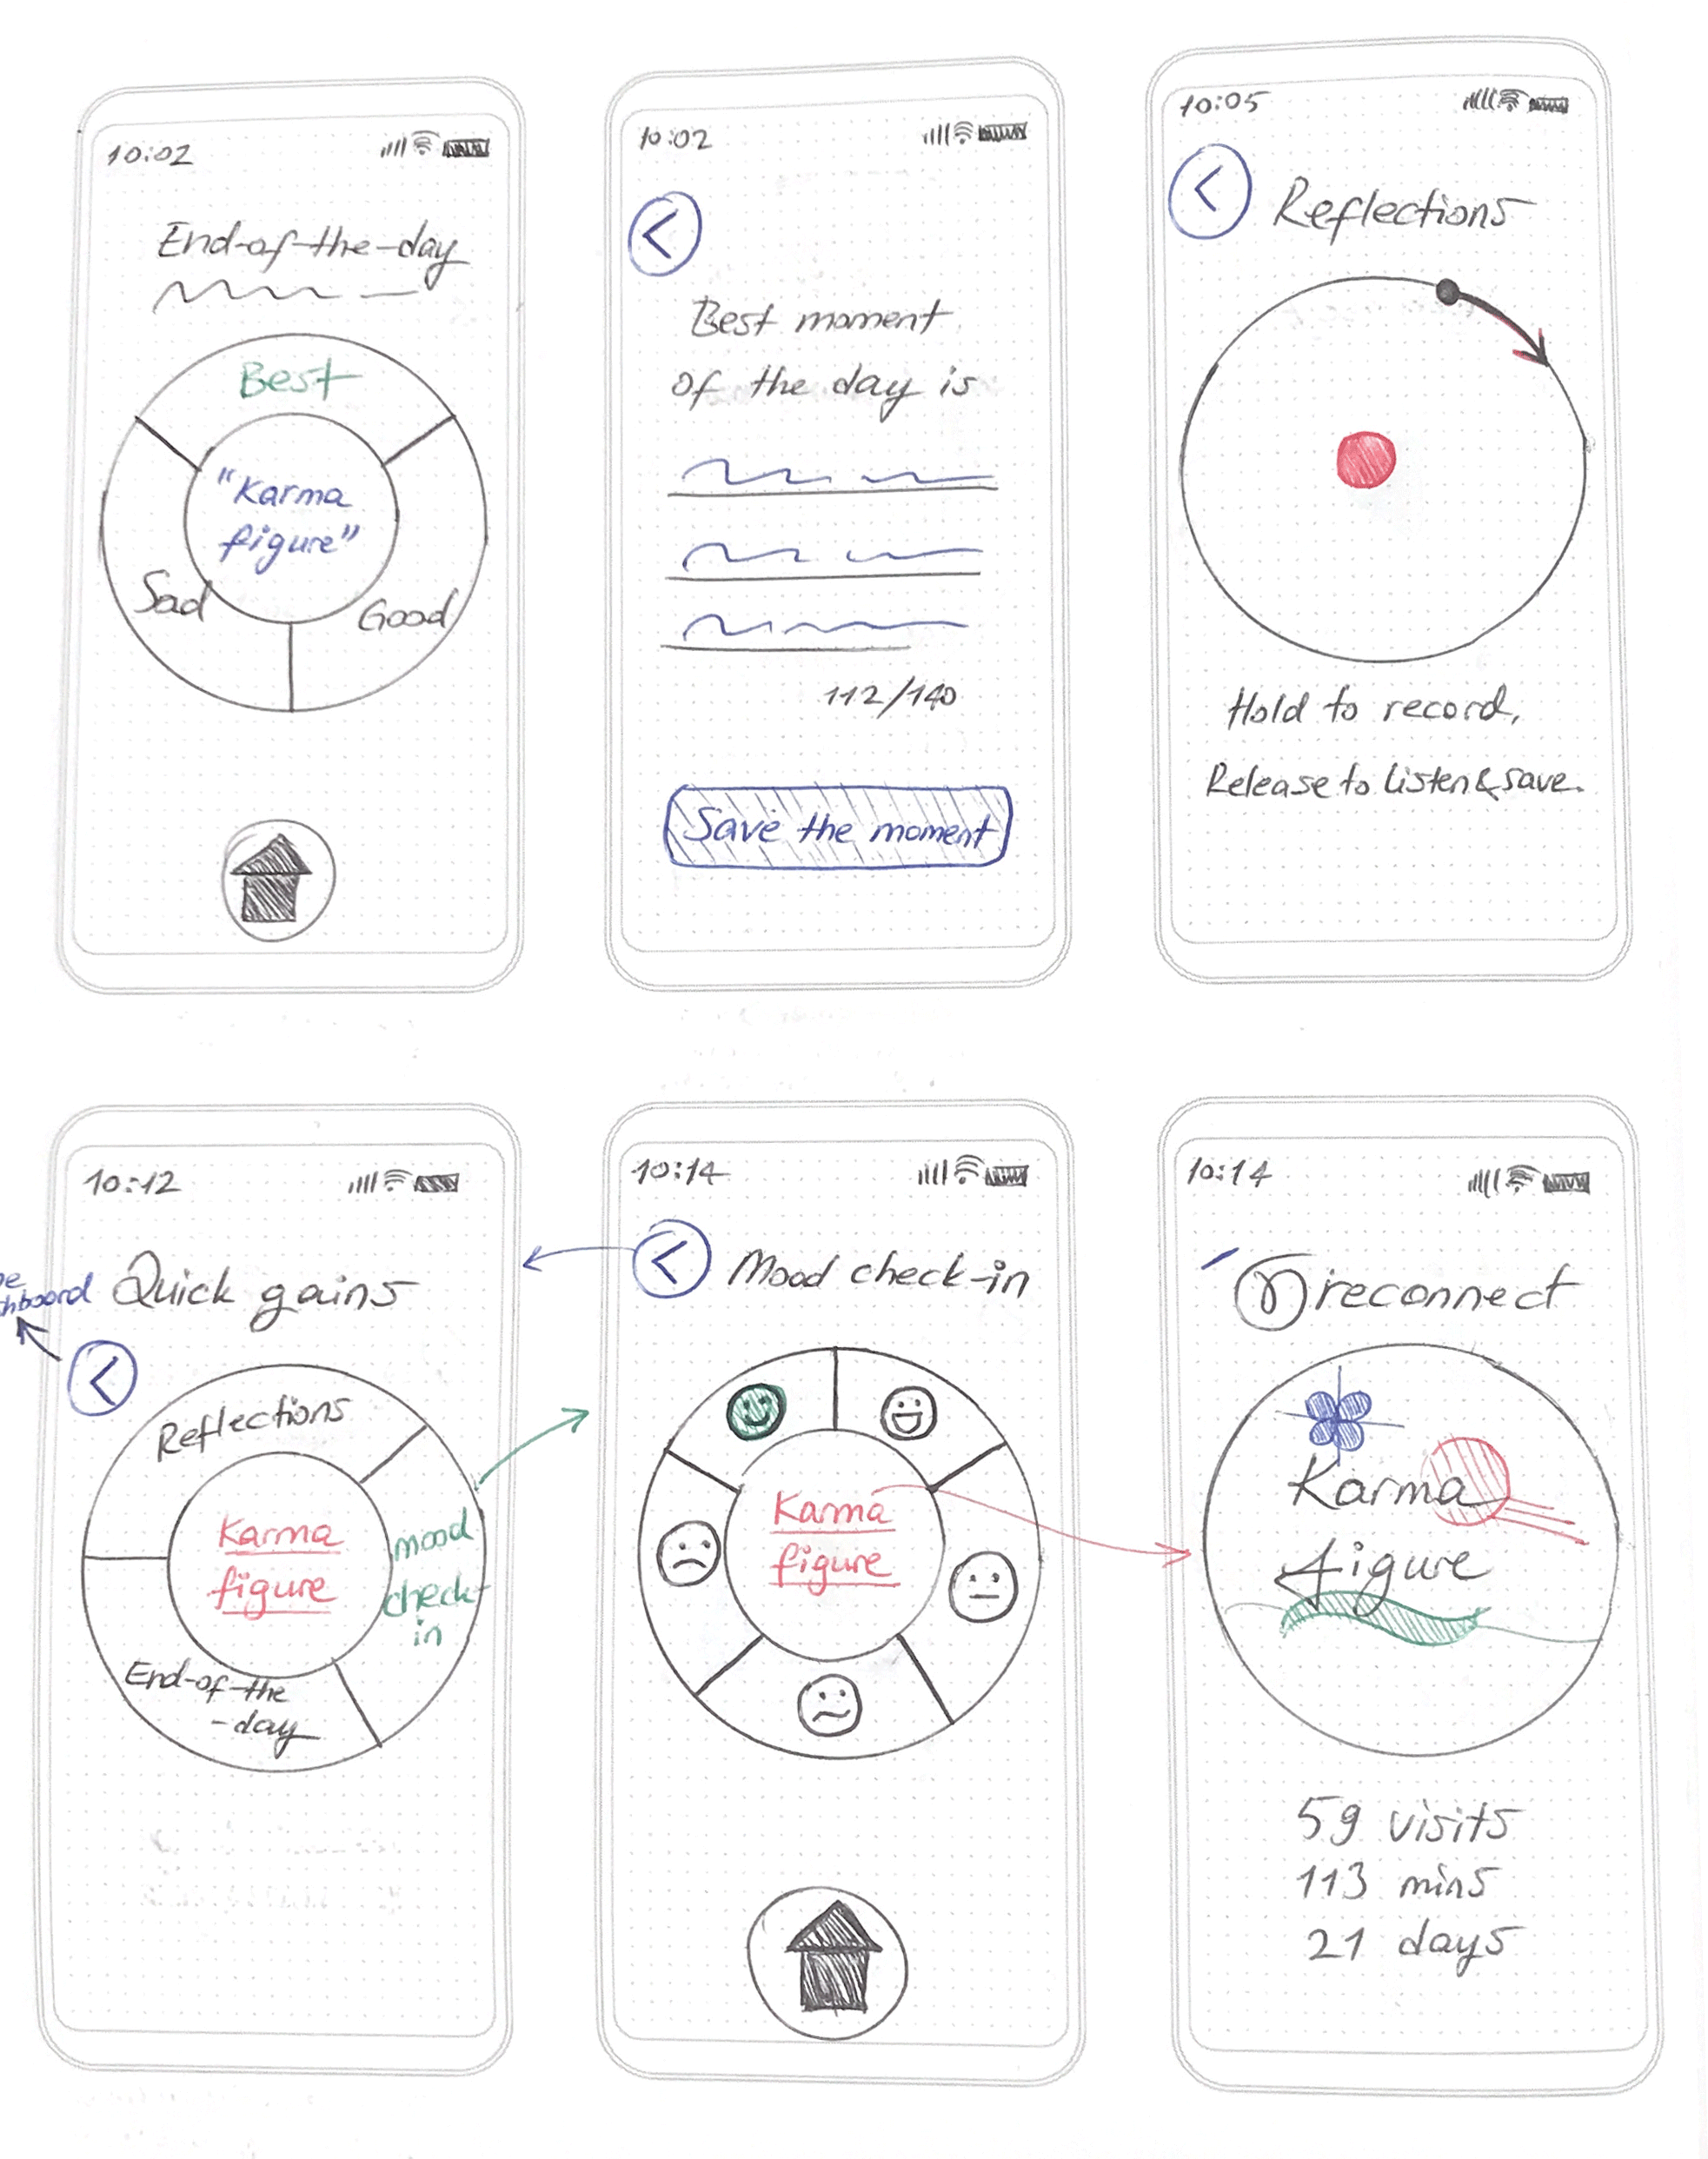 10:02
End-of-the-day
Best
"Karma
figure"
Sad
Good
10:02
Best moment
of the day is
112/140
Save the moment
10:05
Reflections
Hold to record,
Release to listen & save.
10:12
Quick gains
Reflections
Karma
figure
mood
check-
in
End-of-the
-day
10:14
Mood check-in
Karma
figure
10:14
reconnect
Karma
figure
59 visits
113 mins
21 days